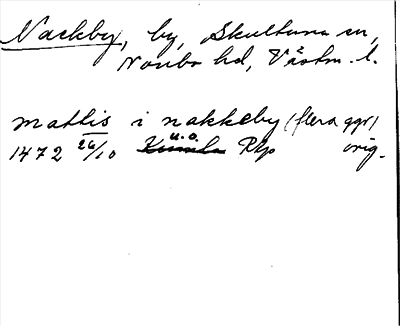 Nackby, by, Skultuna sn,
Norrbo hd, Västm. l.
mattis i nakkeby (flera ggr)
1472 26/10 u.o. Rkp orig.